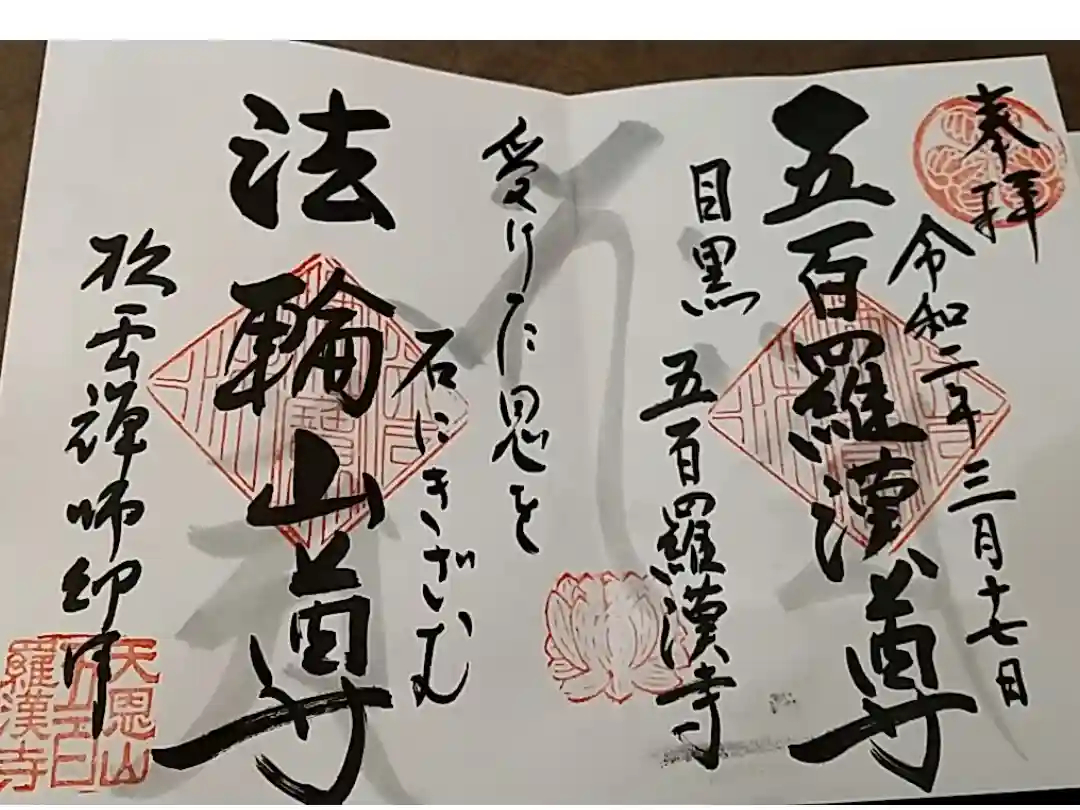 奉拝
令和二年三月十七日
五百羅漢尊
目黒 五百羅漢寺
受けた恩を
石にきざむ
法輪山尊
松雲禅師御開
天恩山
五百
羅漢寺